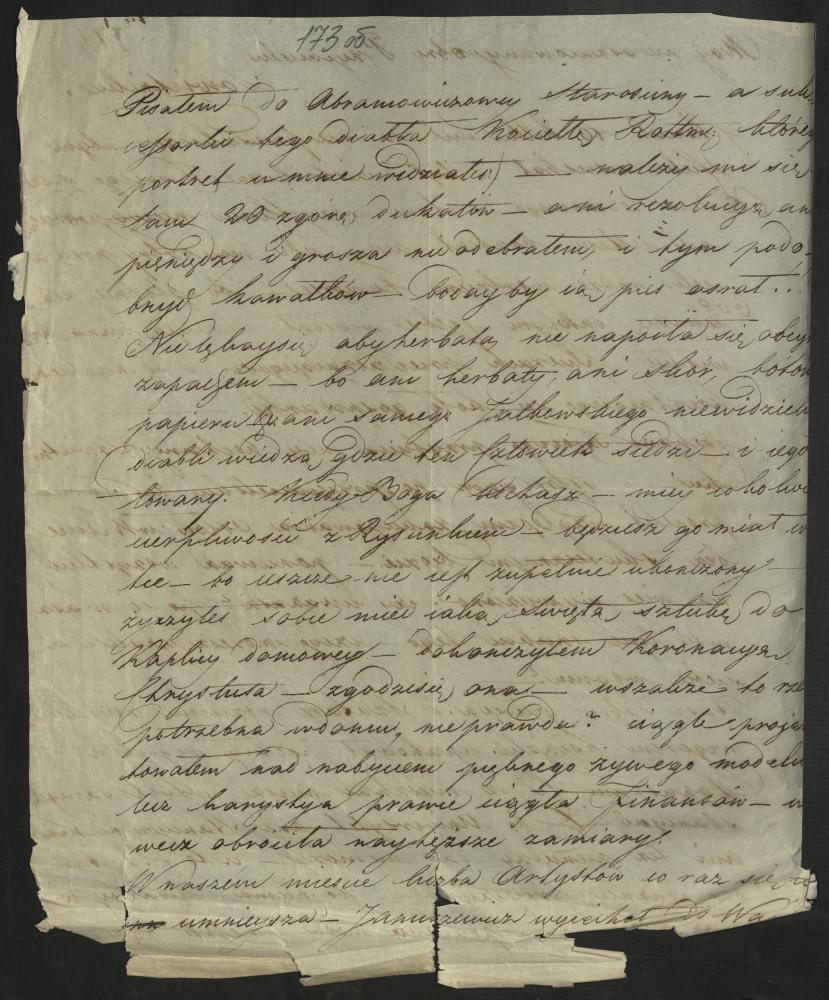 173 об
Pisałem do Abramowiczowey Starościny — a suk-
cessorki tego diabła Kocielle, Rottm; którey
portret u mnie widziałeś) — należy mi się
tam 20 zgórą dukatów — ani rezolucyą, an
pieniędzy i grosza nie odebrałem, i tym podo-
bnych kawałków — bodayby ią pies osrał..
Nie lękaysię, aby herbata nie napoiła się obcym
zapachem — bo ani herbaty, ani skór, bótów
papieru ani samego Jałkowskiego niewidzieli
diabli wiedzą, gdzie ten Człowiek siedzi — i iego
towary. Kiedy Boga kochasz — miey cokolwi
cierpliwość z Rysunkiem — będziesz go miał w
bo ieszcze nie iest zupełnie ukonczony —
życzyłeś sobie mieć iaką Swiętą sztukę do
Kaplicy domowey — dokonczyłem Koronacyą
Chrystusa — zgodzisię ona — wszakże to rze
potrzebna wdomu, nieprawda? ciągle proje
towałem nad nabyciem pięknego żywego modelu
lecz kanystya prawie ciągła Finansów — w
wecz obróciła naytęższe zamiary.
W naszem miescie liczba Artystów co raz się
umnieysza — Januszewicz wyiechał do Wa